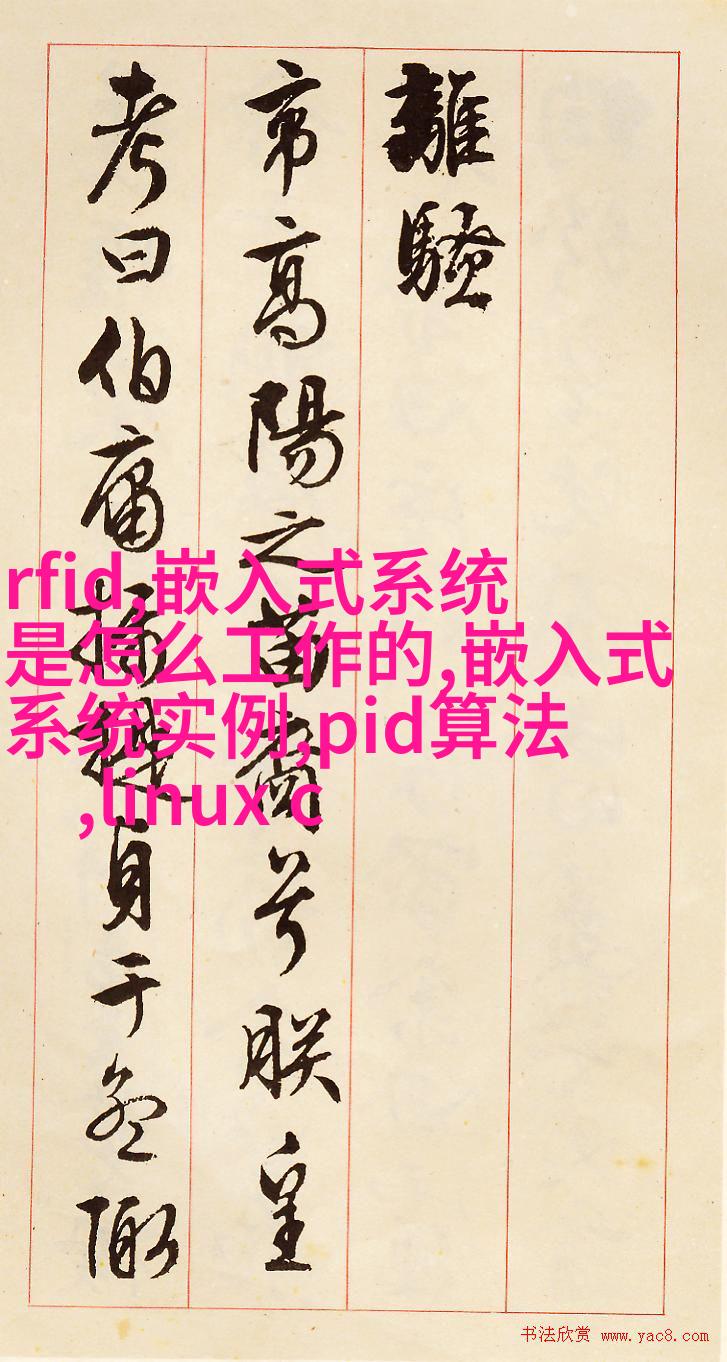 離騷
帝高陽之苗裔兮朕皇
考曰伯庸攝提貞于孟陬
rfid,嵌入式系统
是怎么工作的,嵌入式
系统实例,pid算法
,linux c
书法欣赏 www.yac8.com